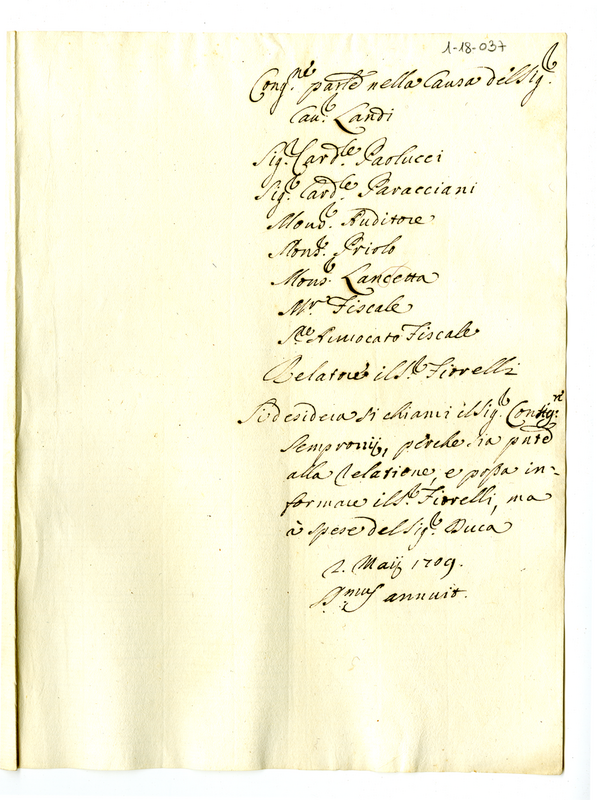 1-18-037
Cong.ne partre nella Causa del Sig.r
Cau.r Landi
Sig.r Card.le Paolucci
Sig.r Card.le Paracciani
Mons.r Auditore
Mons.r Priolo
Mons.r Lancetta
M.r Fiscale
Avvocato Fiscale
Relatore il S.r Fiorelli
Si desidera si chiami il Sig.r
Sempronij, perche sia pnte
alla relatione, e possa in=
formare il S.r Fiorelli, ma
à spese del Sig.r Duca
2. Maij 1709.
SS.mus annuit.